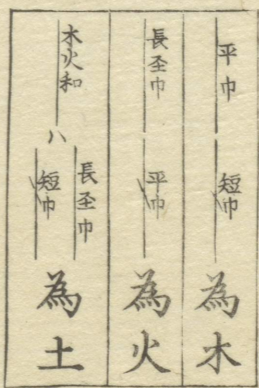 平巾 短巾 為木
長𦤶巾 平巾 為火
木火和 八 長𦤶巾 短巾 為土